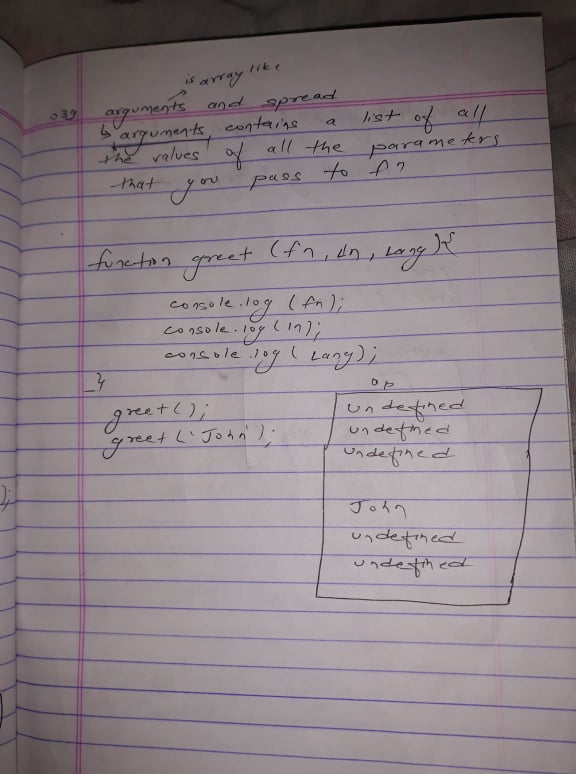 is array like
039 arguments and spread
↳ arguments, contains a list of all
the values of all the parameters
that you pass to fn
function greet (fn, ln, Lang){
console.log (fn);
console.log (ln);
console.log ( Lang);
}
greet();
greet ('John');
op
undefined
undefined
undefined
John
undefined
undefined
);